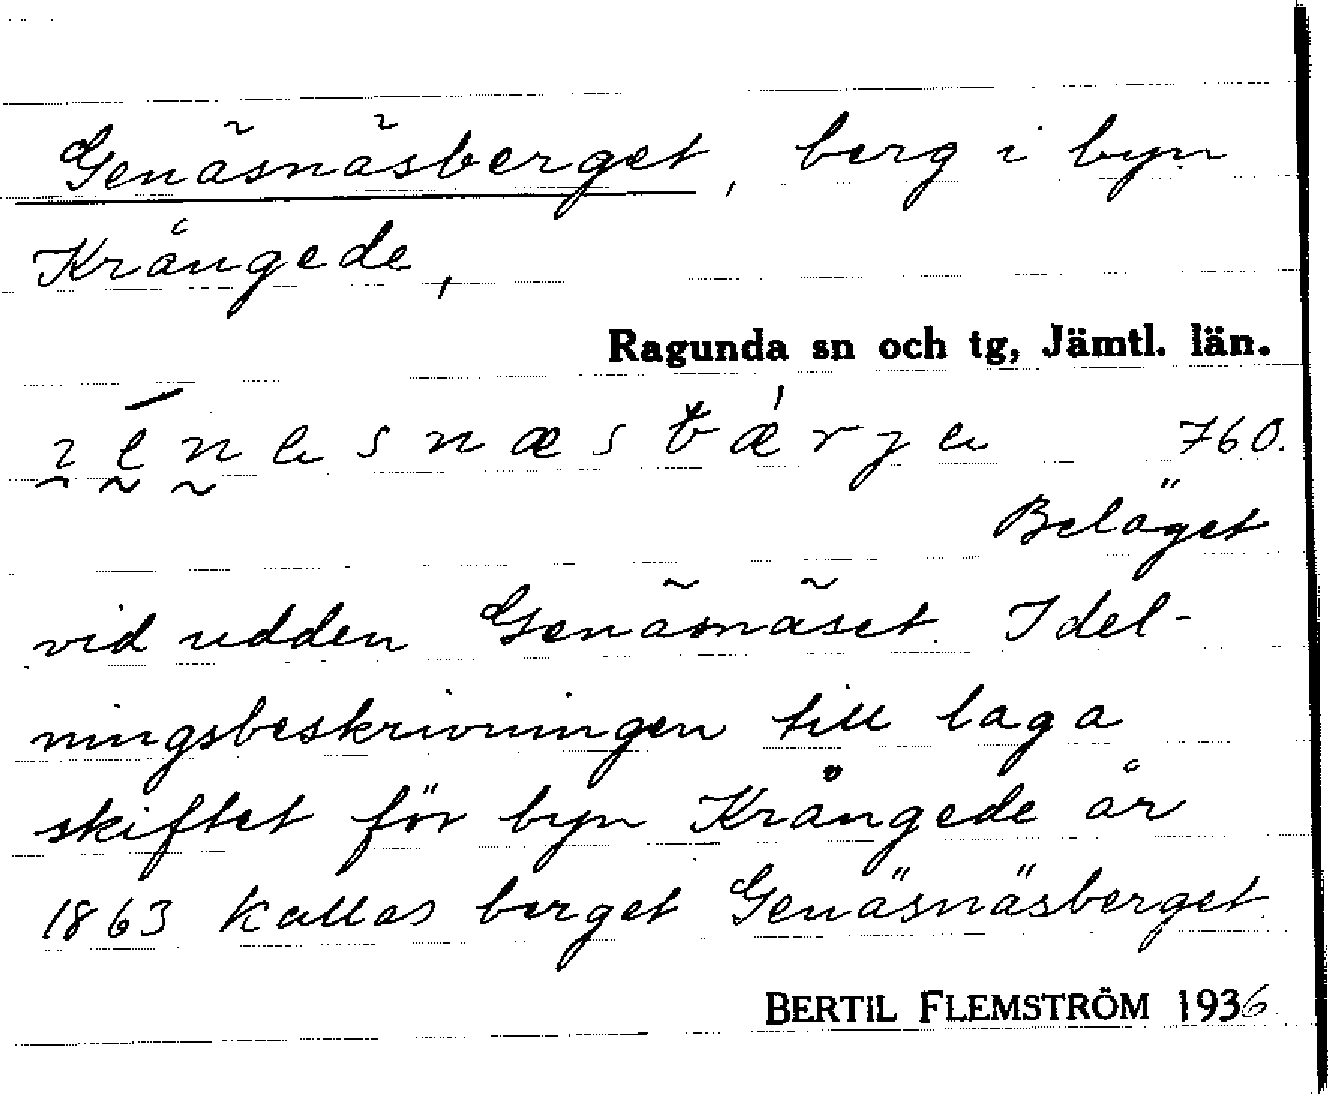 Genäsnäsberget, berg i byn
Krångede,
Ragunda sn och tg, Jämtl. län.
760.
Beläget
vid udden Genäsnäset. I del-
ningsbeskrivningen till laga
skiftet för byn Krångede år
1863 kallas berget Genäsnäsberget.
BERTIL FLEMSTRÖM 1936